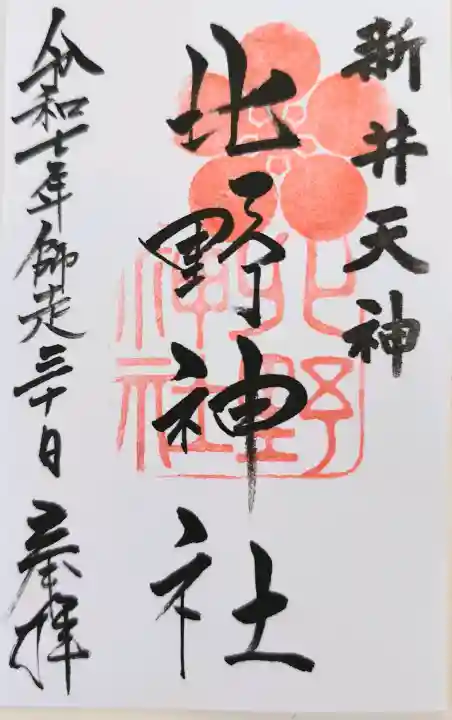 新井天神
北野神社
令和七年師走三十日 奉拝
北野
神社